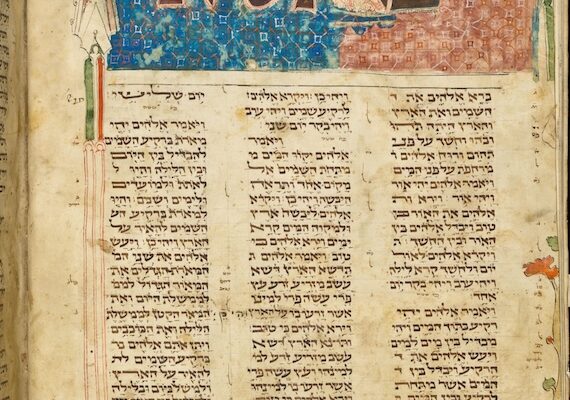 ברא אלהים את ד
השמים ואת הארץ
והארץ היתה תהו
ובהו וחשך על פני
תהום ורוח אלהים
מרחפת על פני המים
ויאמר אלהים יהי אור
ויהי אור וירא
אלהים את האור כי
טוב ויבדל אלהים בין
האור ובין החשך
ויקרא אלהים לאור
יום ולחשך קרא לילה
ויהי ערב ויהי בקר יום
אחד
ויאמר אלהים יהי
רקיע בתוך המים ויהי
מבדיל בין מים למים
ויעש אלהים את ד
הרקיע ויבדל בין
המים אשר מתחת
ויהי כן ויקרא אלהים
לרקיע שמים ויהי ערב
ויהי בקר יום שני
ויאמר
אלהים יקוו המים מ
מתחת השמים אל
מקום אחד ותראה
היבשה ויהי כן ויקרא
אלהים ליבשה ארץ
ולמקוה המים קרא
ימים וירא אלהים כי
טוב ויאמר אלהים
תדשא הארץ דשא
עשב מזריע זרע עץ
פרי עשה פרי למינו
אשר זרעו בו על הארץ
ויהי כן ותוצא הארץ דשא
עשב מזריע זרע למי
יום שלישי
ויאמר אלהים יהי
מארת ברקיע השמים
להבדיל בין היום
ובין הלילה והיו ל
לאתת ולמועדים
ולימים ושנים והיו
למאורת ברקיע הש
השמים להאיר על
הארץ ויהי כן ויעש
אלהים את שני המ
המארת הגדלים את
המאור הגדל
לממשלת היום ואת
המאור הקטן לממשלת
הלילה ואת הכוכבים
ויתן אתם אלהים
ברקיע השמים לה
להאיר על הארץ
ולמשל ביום ובלילה